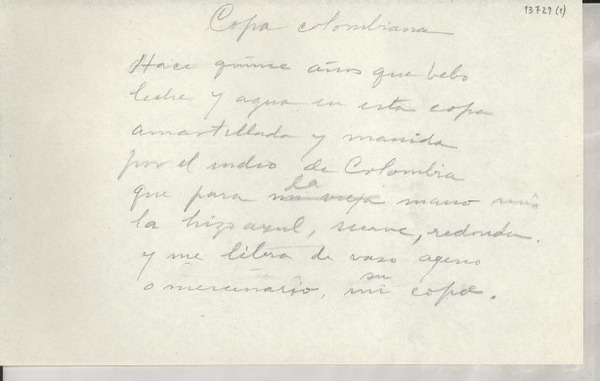 13729 (1)
Copa colombiana
Hace quince años que bebo
leche y agua en esta copa
amartillada y manida
por el indio de Colombia
que para la mano mía
la hizo azul, suave, redonda.
y me libera de vaso ageno
o mercenario, mi su copa.